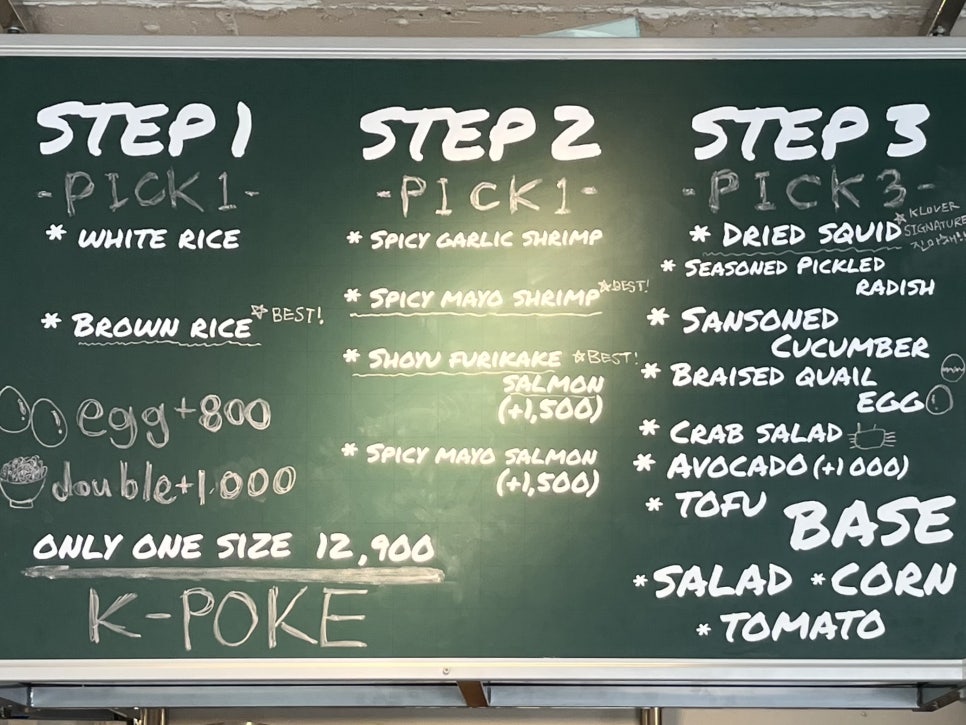 STEP 1
-PICK1-
* WHITE RICE
* BROWN RICE ☆ BEST!
egg+800
double+1.000
ONLY ONE SIZE 12,900
K-POKE
STEP 2
-PICK1-
* SPICY GARLIC SHRIMP
* SPICY MAYO SHRIMP ☆BEST!
* SHOYU FURIKAKE ☆BEST!
SALMON
(+1,500)
* SPICY MAYO SALMON
(+1,500)
STEP 3
-PICK3-
* DRIED SQUID
☆ KLOVER
SIGNATURE
* SEASONED PICKLED
RADISH
* SANSONED
CUCUMBER
* BRAISED QUAIL
EGG
* CRAB SALAD
* AVOCADO (+1000)
* TOFU
BASE
*SALAD *CORN
* TOMATO